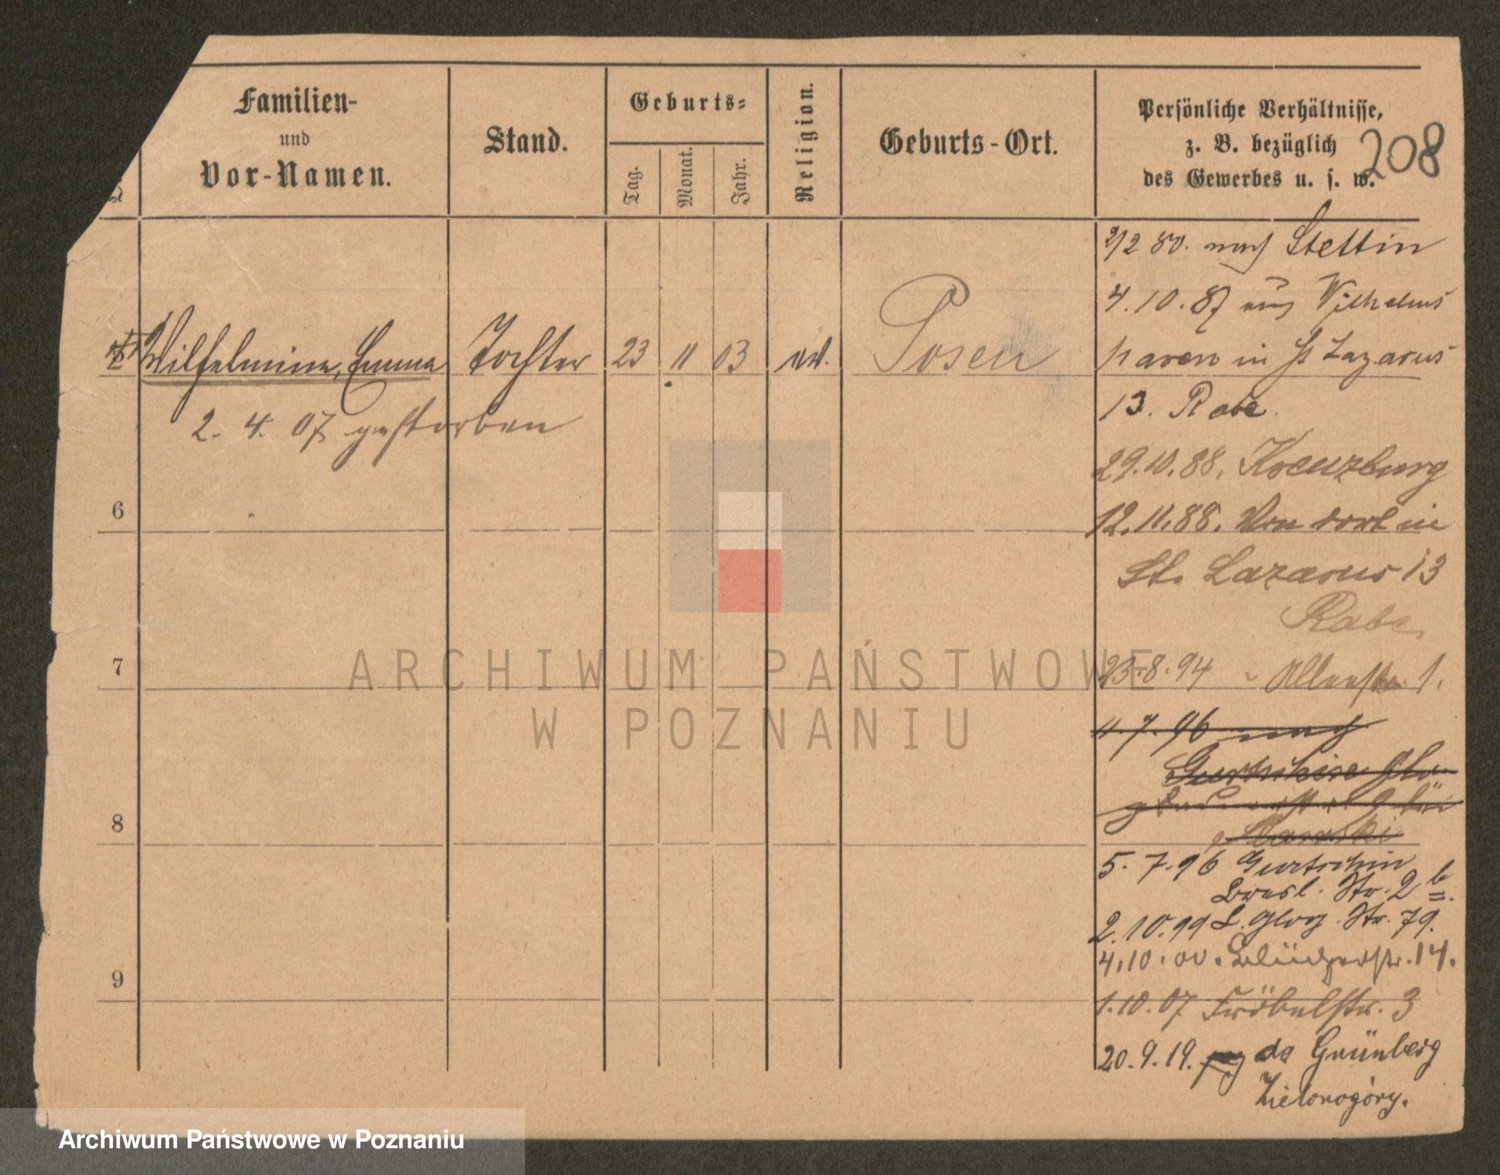 Familien-
und
Vor-Namen.
Stand.
Geburts=
Tag.
Monat.
Jahr.
Religion.
Geburts-Ort.
Persönliche Verhältnisse,
z. B. bezüglich
des Gewerbes u. s. w.
208
2/2 80. nach Stettin
4.10.87 aus Wilhelms
haven in St Lazarus
13. Rabe.
Wilhelmine, Emma Tochter 23 11 03 ev. Posen
2. 4. 07 gestorben
29.10.88. Kreuzburg
12.11.88. Von dort in
St. Lazarus 13
Rabe.
6
7
8
9
23.8.94 1.
11.7.96 nach
5. 7. 96 Gurtschin
Bresl. Str. 2 b.
2.10.99 L. Glog. Str. 79.
4.10.00. Blücherstr. 14.
1.10.07 Fröbelstr. 3
20.9.19. do Grünberg
Zielonogóry.
ARCHIWUM PAŃSTWOWE
W POZNANIU
Archiwum Państwowe w Poznaniu